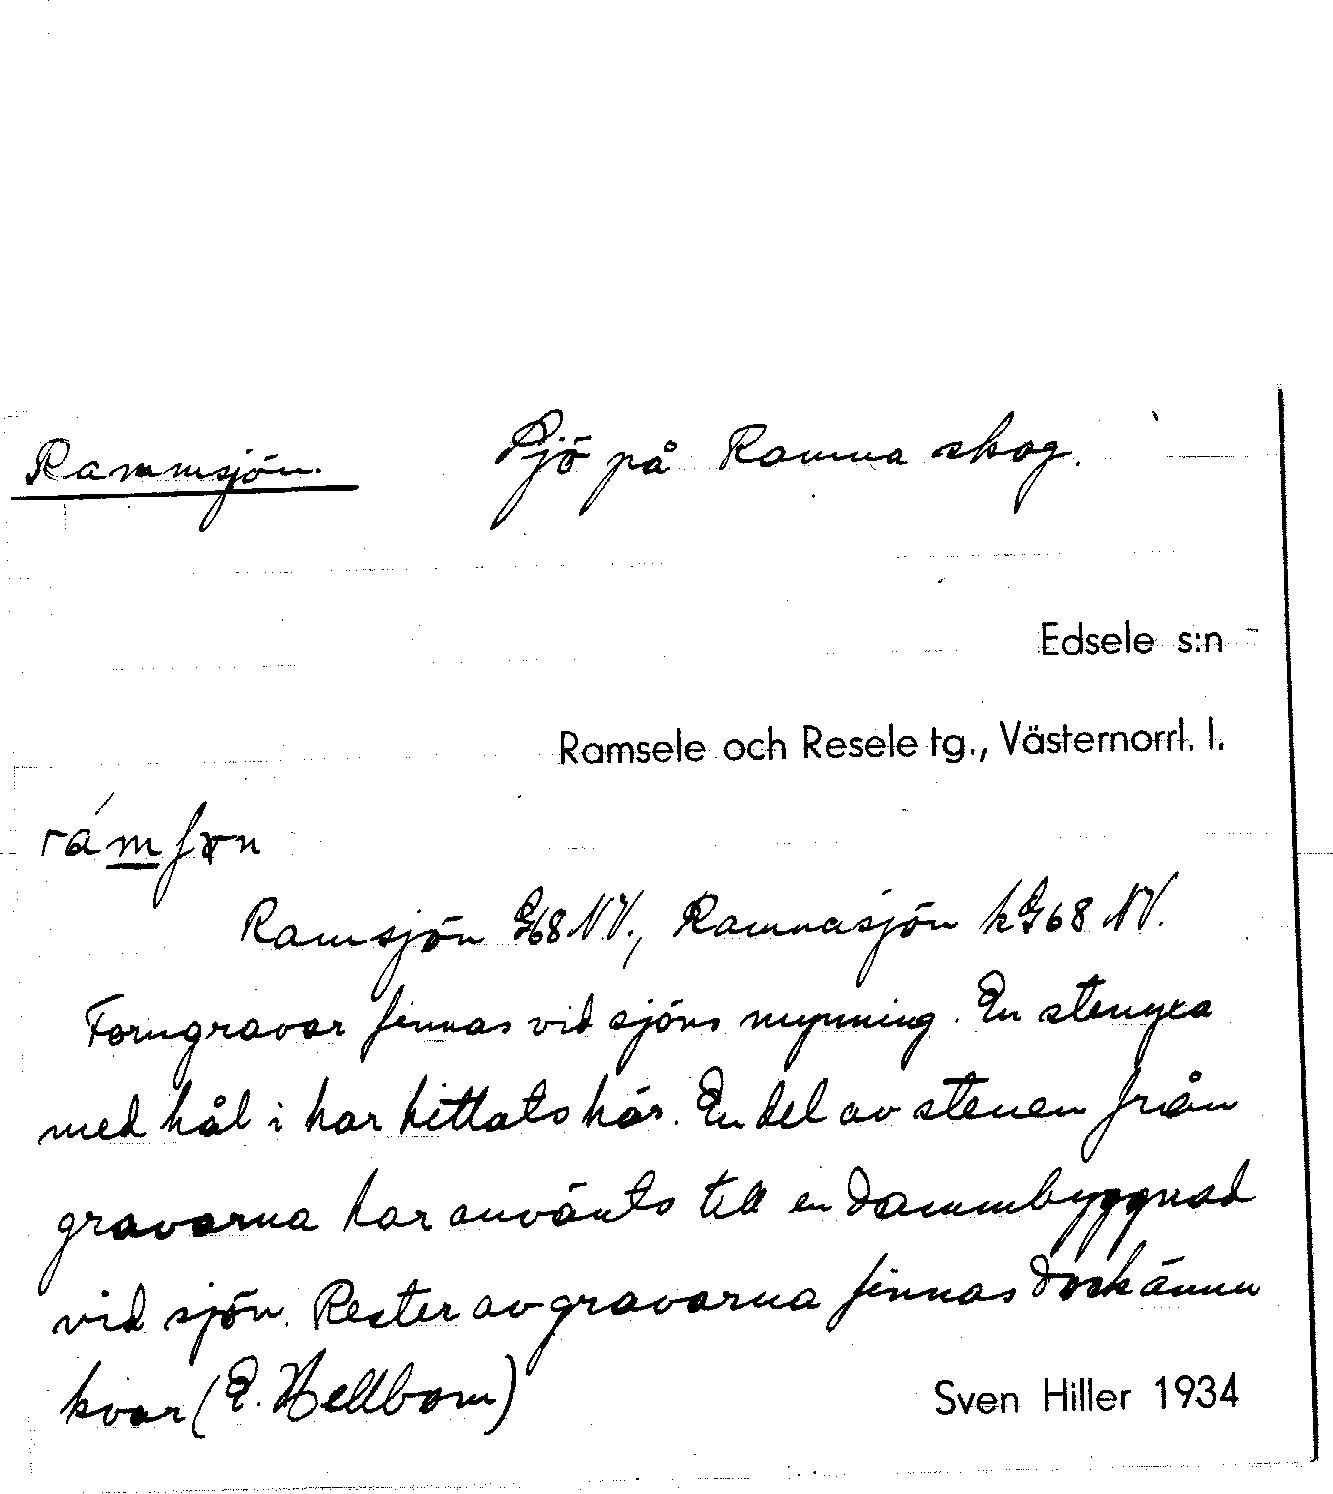 Rammsjön. Sjö på Ramna skog.
Edsele s:n
Ramsele och Resele tg., Västernorrl. l.
Ramsjön G68 NV., Ramnasjön hG68 NV.
Forngravar finnas vid sjöns mynning. En stenyxa
med hål i har hittats här. En del av stenen från
gravarna har använts till en dammbyggnad
vid sjön. Rester av gravarna finnas dock ännu
kvar (E. Hellbom) Sven Hiller 1934